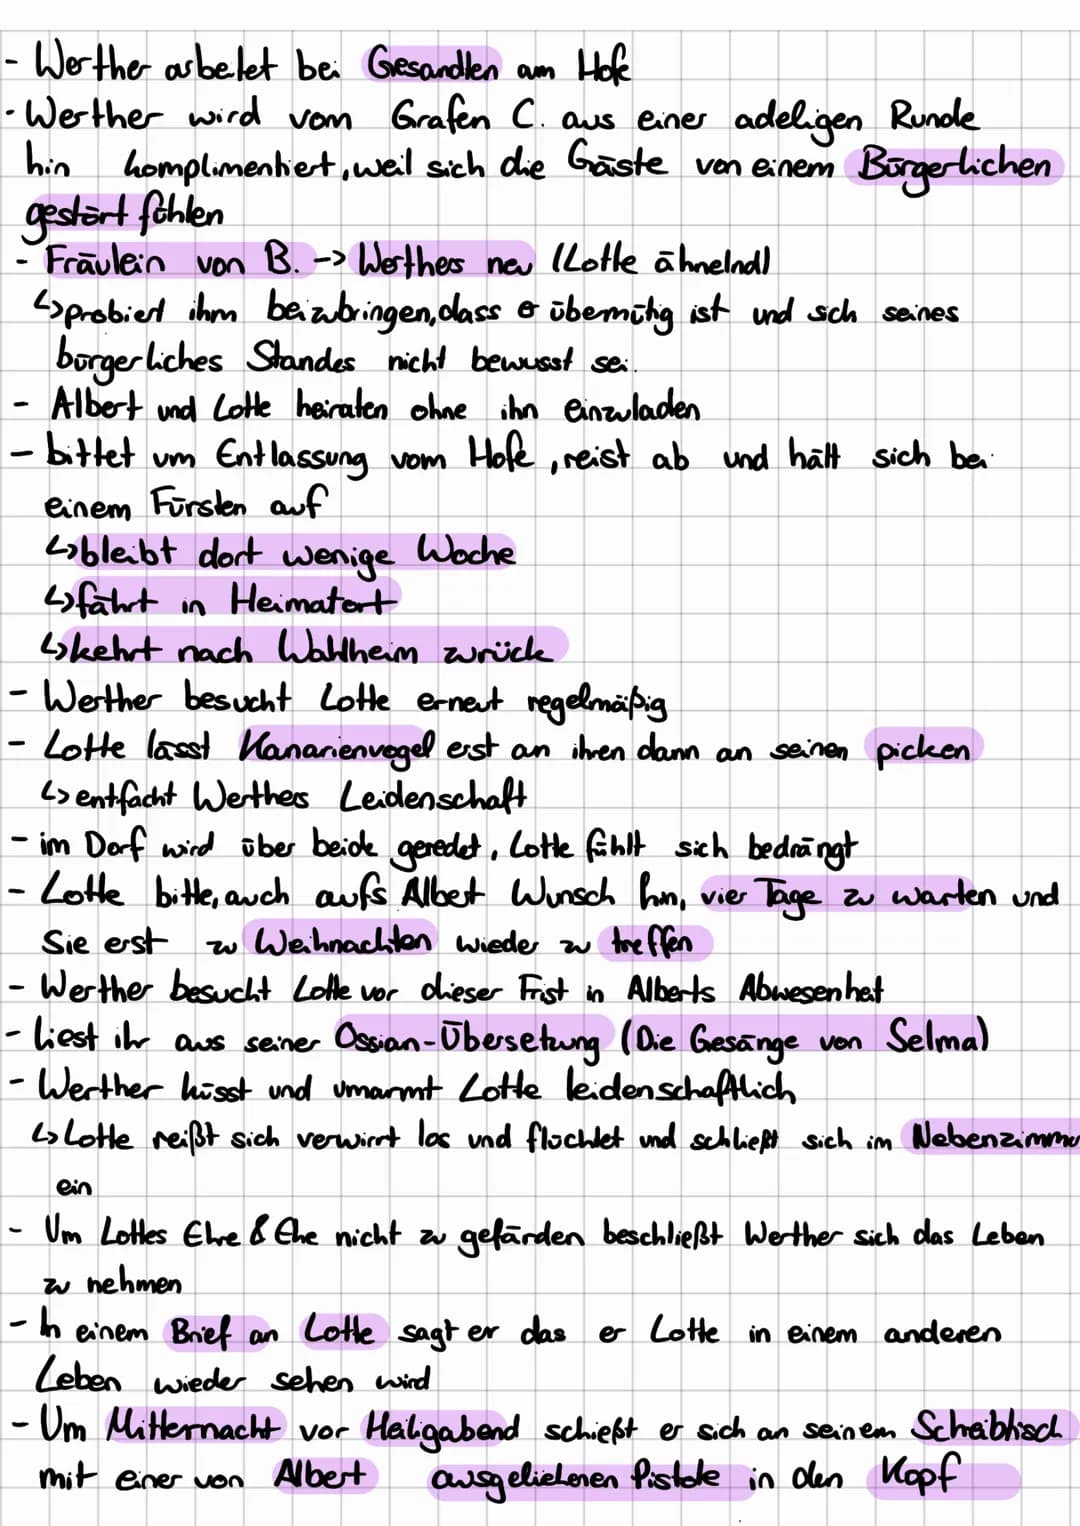 - Werther arbeitet bei Gesandten am Hofe
- Werther wird vom Grafen C. aus einer adeligen Runde
hin komplimentiert, weil sich die Gäste von einem Bürgerlichen
gestört fühlen
- Fräulein von B. -> Werthers neu (Lotte ähnelnd)
↳ probiert ihm beizubringen, dass er übermütig ist und sich seines
bürgerliches Standes nicht bewusst sei.
- Albert und Lotte heiraten ohne ihn einzuladen
- bittet um Entlassung vom Hofe, reist ab und hält sich bei
einem Fürsten auf
↳ bleibt dort wenige Woche
↳ fährt in Heimatort
↳ kehrt nach Wahlheim zurück
- Werther besucht Lotte erneut regelmäßig
- Lotte lässt Kanarienvogel erst an ihren dann an seinen picken
↳ entfacht Werthers Leidenschaft
- im Dorf wird über beide geredet, Lotte fühlt sich bedrängt
- Lotte bitte, auch aufs Albert Wunsch hin, vier Tage zu warten und
Sie erst zu Weihnachten wieder zu treffen
- Werther besucht Lotte vor dieser Frist in Alberts Abwesenheit
- liest ihr aus seiner Ossian-Übersetzung (Die Gesänge von Selma)
- Werther küsst und umarmt Lotte leidenschaftlich
↳ Lotte reißt sich verwirrt los und flüchtet und schließt sich im Nebenzimmer
ein
- Um Lottes Ehre & Ehe nicht zu gefärden beschließt Werther sich das Leben
zu nehmen
- In einem Brief an Lotte sagt er das er Lotte in einem anderen
Leben wieder sehen wird
- Um Mitternacht vor Heiligabend schießt er sich an seinem Schreibtisch
mit einer von Albert ausgeliehenen Pistole in den Kopf